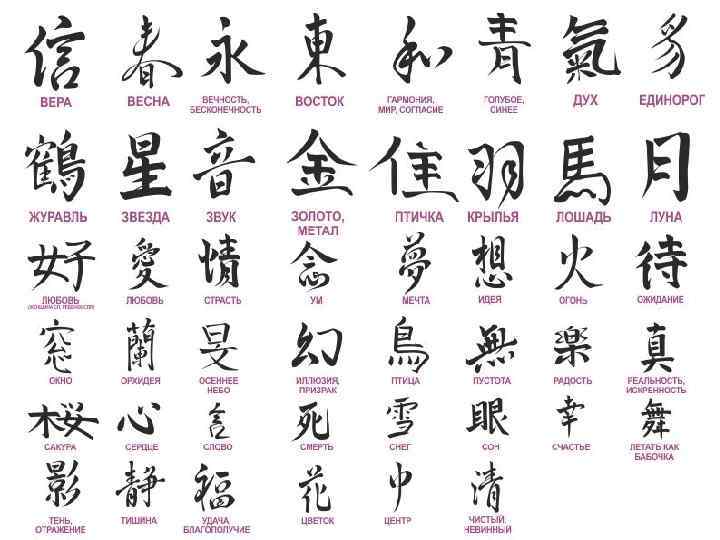 信 春 永 東 和 青 氣 豸
ВЕРА ВЕСНА ВЕЧНОСТЬ, ВОСТОК ГАРМОНИЯ, ГОЛУБОЕ, ДУХ ЕДИНОРОГ
БЕСКОНЕЧНОСТЬ МИР, СОГЛАСИЕ СИНЕЕ
鶴 星 音 金 隹 羽 馬 月
ЖУРАВЛЬ ЗВЕЗДА ЗВУК ЗОЛОТО, ПТИЧКА КРЫЛЬЯ ЛОШАДЬ ЛУНА
МЕТАЛ
好 愛 情 念 夢 想 火 待
ЛЮБОВЬ ЛЮБОВЬ СТРАСТЬ УМ МЕЧТА ИДЕЯ ОГОНЬ ОЖИДАНИЕ
窓 蘭 旻 幻 鳥 無 楽 真
ОКНО ОРХИДЕЯ ОСЕННЕЕ ИЛЛЮЗИЯ, ПТИЦА ПУСТОТА РАДОСТЬ РЕАЛЬНОСТЬ,
НЕБО ПРИЗРАК ИСКРЕННОСТЬ
桜 心 言 死 雪 眼 幸 舞
САКУРА СЕРДЦЕ СЛОВО СМЕРТЬ СНЕГ СОН СЧАСТЬЕ ЛЕТАТЬ КАК
БАБОЧКА
影 静 福 花 中 清
ТЕНЬ, ТИШИНА УДАЧА, ЦВЕТОК ЦЕНТР ЧИСТЫЙ,
ОТРАЖЕНИЕ БЛАГОПОЛУЧИЕ НЕВИННЫЙ